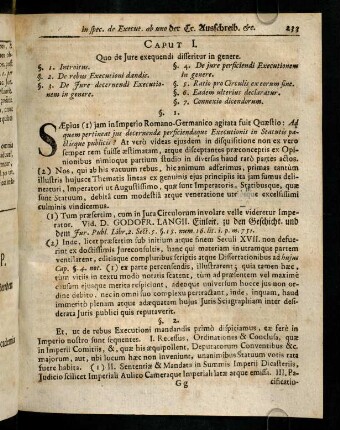 In spec. de Execut. ab uno der Cr. Ausschreib. &c. 233
CAPUT I.
Quo de Jure exequendi disseritur in genere.
§. 1. Introitus.
§. 2. De rebus Executioni dandis.
§. 3. De Jure decernendi Executionem in genere.
§. 4. De jure perficiendi Executionem in genere.
§. 5. Ratio pro Circulis exercen
§. 6. Eadem ulterius declaratur.
§. 7. Connexio dicendorum.
§. 1.
SÆpius (1) jam in Imperio Romano-Germanico agitata fuit Quæstio: Ad
quem pertineat jus decernendæ perficiendæque Executionis in Statutis
publicis? At verò videas ejusdem in disquisitione non ex vero
semper rem fuisse æstimatam, atque disceptantes præconceptis ex Opinionibus
nimioque partium studio in diversis haud rarò partes actos.
(2) Nos, qui ab his vacuum rebus, hic animum adferimus, primas tantum
illustris hujusce Thematis lineas ex genuinis ejus principiis ita jam sumus delineaturi,
Imperatori ut Augustissimo, quæ sunt Imperatoris, Statibusque, quæ
sunt Statuum, debitâ cum modestiâ atque veneratione excellissimi
culminis vindicemus.
(1) Tum præsertim, cum in Jura Circulorum involare velle videretur Imperator.
Vid. D. GODOFR. LANGII. Einleit. zu den Geschicht. und
dem Jur. Publ. Libr. 2. Sect. 5. §. 15. num. 16. lit. i. p. m. 751.
(2) Inde, licet præsertim sub initium atque finem Seculi XVII. non defuerint
ex doctissimis Jureconsultis, hanc qui materiam in utramque partem
ventilarent, editisque compluribus scriptis atque Dissertationibus ad hujus
Cap. §. 4. not. (1) ex parte percensendis, illustrarent; quia tamen hæc,
tum vitiis in textu modo notatis scatent, tum ad præsentem vel maxime
rerum faciem non quadrant, nec universum hocce arduumque jus non ordine
debito, nec in omni suo complexu pertractant, inde, inquam, haud
immeritò plenam atque adæquatam hujus Juris Sciagraphiam inter desiderata
Juris publici quis reputaverit.
§. 2.
Et, ut de rebus Executioni mandandis primò dispiciamus, eæ ferè in
Imperio nostro sunt sequentes. I. Recessus, Ordinationes & Conclusa, quæ
in Imperii Comitiis, &, quæ his æquipollent, Deputatorum Conventibus &c.
majorum, aut, ubi lucum hæc non inveniunt, unanimibus Statuum votis rata
fuere habita. (1) II. Sententiæ & Mandata in Summis Imperii Dicasteriis,
Judicio scilicet Imperiali Aulico Cameraque Imperiali lata atque emissa. III. Pa-
Gg cificatio-